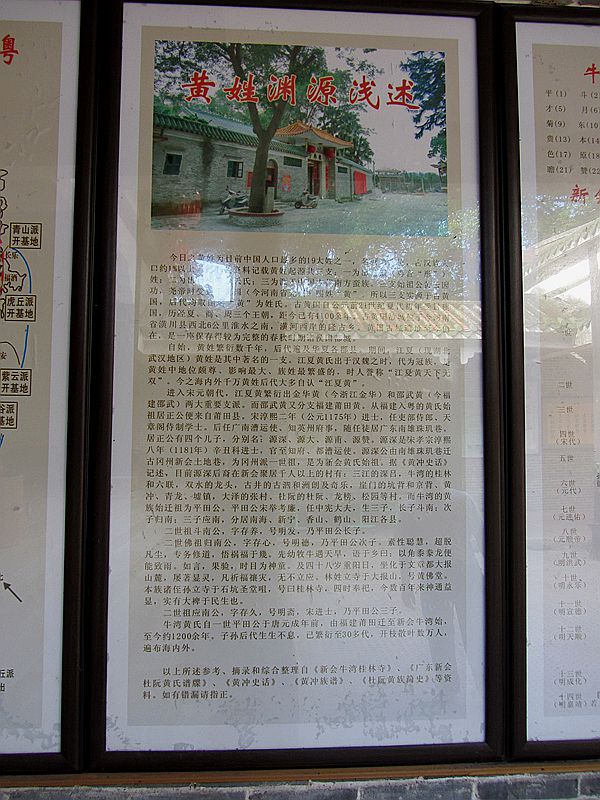 粤
青山派
开基地
虎丘派
开基地
紫云派
开基地
谷派
基地
黄姓渊源浅述
省潢川县西北6公里淮水之南，潢河西岸的
在，是一座保存得较为完整的春秋时期
自始，黄姓繁衍数千年，后代遍及华夏各
武汉地区）黄姓是其中著名的一支。江夏黄氏出于汉魏之时，代为冠族，是
黄姓中地位颇尊、影响最大、族姓最盛的，时人誉称“江夏黄天下无
双”。今之海内外千万黄姓后代大多自认“江夏黄”。
进入宋元朝代，江夏黄繁衍出金华黄（今浙江金华）和邵武黄（今福
建邵武）两大重要支派。而邵武黄又分支福建莆田黄。从福建入粤的黄氏始
祖居正公便来自莆田县，宋淳熙二年（公元1175年）进士，任吏部侍郎、天
章阁侍制学士。后任广南漕运使、知英州府事，随任徙居广东南雄珠玑巷。
居正公有四个儿子，分别名：源深、源大、源甫、源赞。源深是宋孝宗淳熙
八年（1181年）辛丑科进士，官至知府、都漕运使，源深公由南雄珠玑巷迁
古冈州新会土地巷，为冈州派一世祖，是为新会黄氏始祖。据《黄冲史话》
记述，目前源深后裔在新会聚居千人以上的村有：三江的深吕，牛湾的桂林
和六联，双水的龙头，古井的古泗和洲朗及奇乐，崖门的坑背和京背、黄
冲、青龙、墟镇，大泽的张村、杜阮的杜阮、龙榜、松园等村，而牛湾的黄
族始迁祖为平田公。平田公宋举考廉，任中宪大夫，生三子，长子斗南；次
子归南；三子应南，分居南海、新宁、香山、鹤山、阳江各县。
二世祖斗南公，字存养，号明发，乃平田公长子。
二世佛祖归南公，字存心，号明德，乃平田公次子。素性聪慧，超脱
凡尘，专务修道，悟祸福于幾。先幼牧牛遇天旱，语于乡曰：以角黍黍龙便
能致雨。如言，果验，时目为神童。及四十八岁重阳日，坐化于文章都大报
山麓，屡著显灵，凡祈福禳灾，无不立应。林姓立寺于大报山，号黄佛堂。
本族诸任孙立寺于石坑圣堂咀，号曰桂林寺，四时奉祀，今数百年来神通益
显，实有大裨于民生也。
二世祖应南公，字存久，号明斋，宋进士，乃平田公三子。
牛湾黄氏自一世平田公于唐元成年前，由福建莆田迁至新会牛湾始，
至今约1200余年。子孙后代生生不息，已繁衍至30多代，开枝散叶数万人，
遍布海内外。
以上所述参考、摘录和综合整理自《新会牛湾桂林寺》、《广东新会
杜阮黄氏谱牒》、《黄冲史话》、《黄冲族谱》、《杜阮黄族简史》等资
料。如有错漏请指正。
平(1) 斗(2
才(5) 月(6
菊(9) 东(10
贵(13) 本(14
色(17) 原(18
瞻(21) 赞(22
二世
三世
四世
（宋代）
五世
六世
（元代）
七世
（元延佑）
八世
（元顺帝）
九世
（明洪武）
十世
（明永乐）
十一世
（明宣德）
十二世
（明天顺）
十三世
（明成化）
十四世
（明嘉靖）若